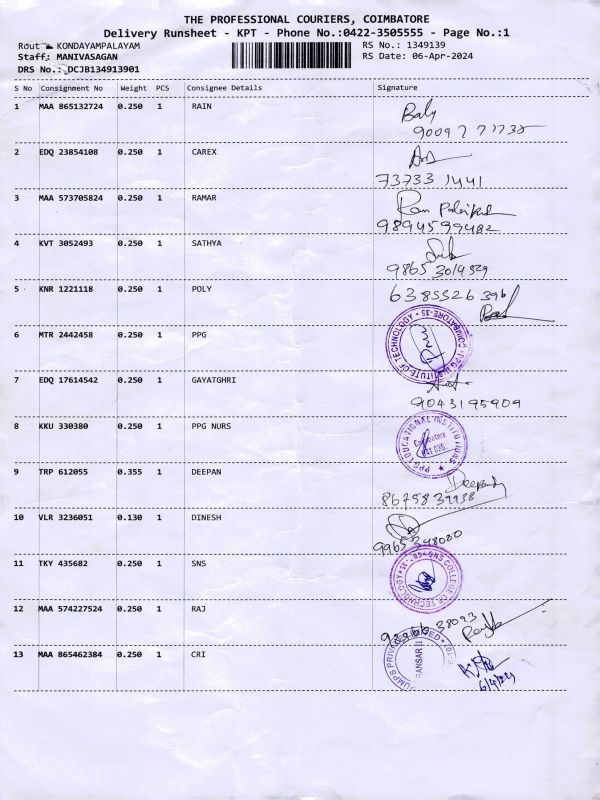 THE PROFESSIONAL COURIERS, COIMBATORE
Delivery Runsheet - KPT - Phone No.:0422-3505555 - Page No.:1
Rout KONDAYAMPALAYAM RS No.: 1349139
Staff: MANIVASAGAN RS Date: 06-Apr-2024
DRS No.: DCJB134913901
S No Consignment No Weight PCS Consignee Details Signature
1 MAA 865132724 0.250 1 RAIN
Baly
2 EDQ 23854108 0.250 1 CAREX
73733 1441
3 MAA 573705824 0.250 1 RAMAR
Ram
9894599482
4 KVT 3052493 0.250 1 SATHYA
9865 3019529
5 KNR 1221118 0.250 1 POLY 6385526 396
6 MTR 2442458 0.250 1 PPG
PPG INSTITUTE OF TECHNOLOGY COIMBATORE-35
7 EDQ 17614542 0.250 1 GAYATGHRI
9043195909
8 KKU 330380 0.250 1 PPG NURS
PPG EDUCATIONAL INSTITUTIONS
Coimbatore
641 035.
9 TRP 612055 0.355 1 DEEPAN
8675839938
10 VLR 3236051 0.130 1 DINESH
9965348020
11 TKY 435682 0.250 1 SNS
SNS COLLEGE OF TECHNOLOGY
12 MAA 574227524 0.250 1 RAJ
38093
13 MAA 865462384 0.250 1 CRI
PUMPS PRIVATE LIMITED
6/4/24